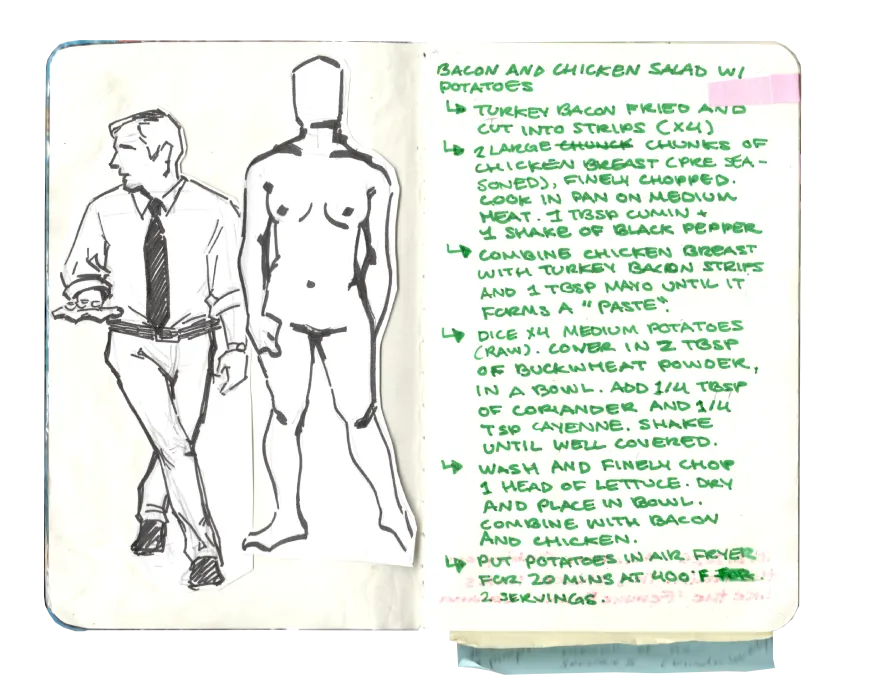 BACON AND CHICKEN SALAD W/
POTATOES
↳ TURKEY BACON FRIED AND
CUT INTO STRIPS (X4)
↳ 2 LARGE CHUNCK CHUNKS OF
CHICKEN BREAST (PRE SEA-
SONED), FINELY CHOPPED.
COOK IN PAN ON MEDIUM
HEAT. 1 TBSP CUMIN +
1 SHAKE OF BLACK PEPPER
↳ COMBINE CHICKEN BREAST
WITH TURKEY BACON STRIPS
AND 1 TBSP MAYO UNTIL IT
FORMS A "PASTE".
↳ DICE X4 MEDIUM POTATOES
(RAW). COVER IN 2 TBSP
OF BUCKWHEAT POWDER,
IN A BOWL. ADD 1/4 TBSP
OF CORIANDER AND 1/4
TSP CAYENNE. SHAKE
UNTIL WELL COVERED.
↳ WASH AND FINELY CHOP
1 HEAD OF LETTUCE. DRY
AND PLACE IN BOWL.
COMBINE WITH BACON
AND CHICKEN.
↳ PUT POTATOES IN AIR FRYER
FOR 20 MINS AT 400°F FOR
2 SERVINGS.